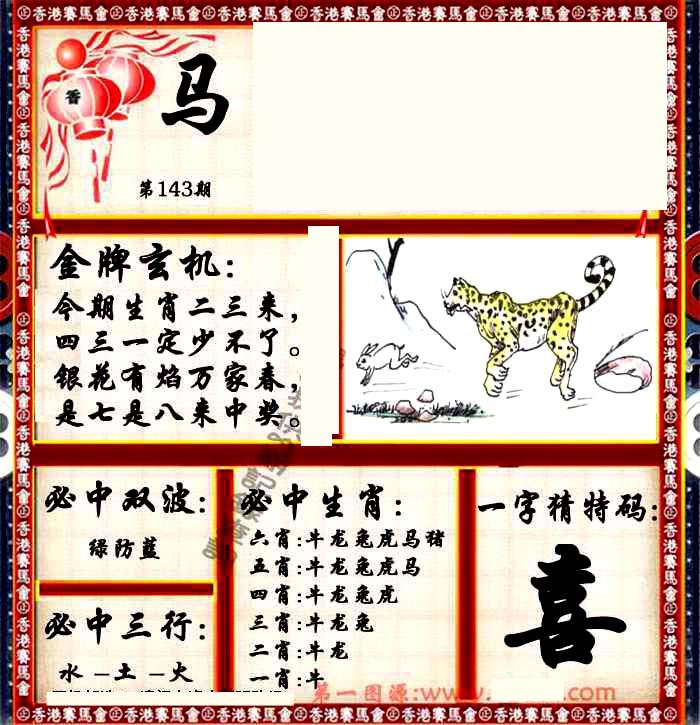 香港賽馬會
香
马
第143期
金牌玄机:
今期生肖二三来,
四三一定少不了。
银花有焰万家春,
是七是八来中奖。
必中双波:
绿防蓝
必中三行:
水-土-火
必中生肖:
六肖:牛龙兔虎马猪
五肖:牛龙兔虎马
四肖:牛龙兔虎
三肖:牛龙兔
二肖:牛龙
一肖:牛
一字猜特码:
喜
第一图源:www.
.com